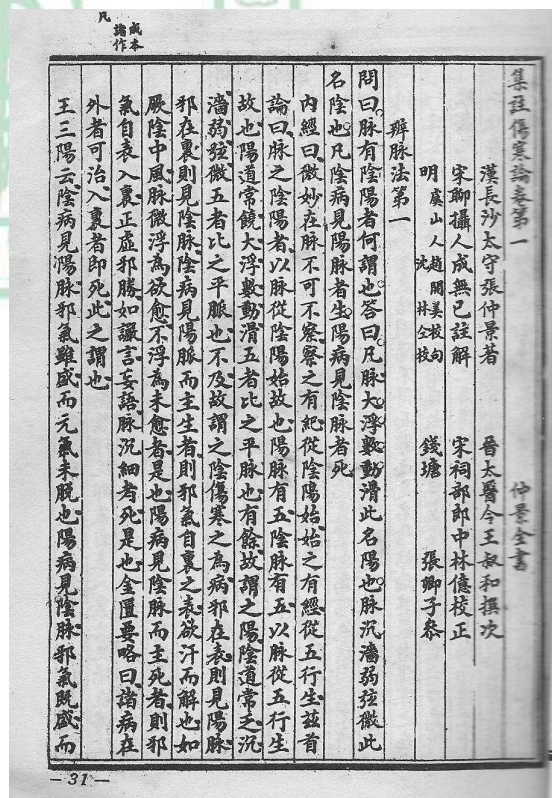 集註傷寒論卷第一　仲景全書
漢長沙太守張仲景著　晉太醫令王叔和撰次
宋聊攝人成無已註解　宋祠部郎中林億校正
明　虞山人趙開美校句　沈　林仝校　錢塘　張卿子參
辨脉法第一
問曰脉有陰陽者何謂也答曰凡脉大浮數動滑此名陽也脉沉濇弱弦微此
名陰也凡陰病見陽脉者生陽病見陰脉者死
内經曰微妙在脉不可不察察之有紀從陰陽始始之有經從五行生兹首
論曰脉之陰陽者以脉從陰陽始故也陽脉有五陰脉有五以脉從五行生
故也陽道常饒大浮數動滑五者比之平脉也有餘故謂之陽陰道常乏沉
濇弱弦微五者比之平脈也不及故謂之陰傷寒之為病邪在表則見陽脉
邪在裏則見陰脉陰病見陽脈而主生者則邪氣自裏之表欲汗而解也如
厥陰中風脉微浮為欲愈不浮為未愈者是也陽病見陰脉而主死者則邪
氣自表入裏正虛邪勝如讝言妄語脉沉細者死是也金匱要略曰諸病在
外者可治入裏者即死此之謂也
王三陽云陰病見陽脉邪氣雖盛而元氣未脱也陽病見陰脉邪氣既盛而
成本
諸作
凡
—31—